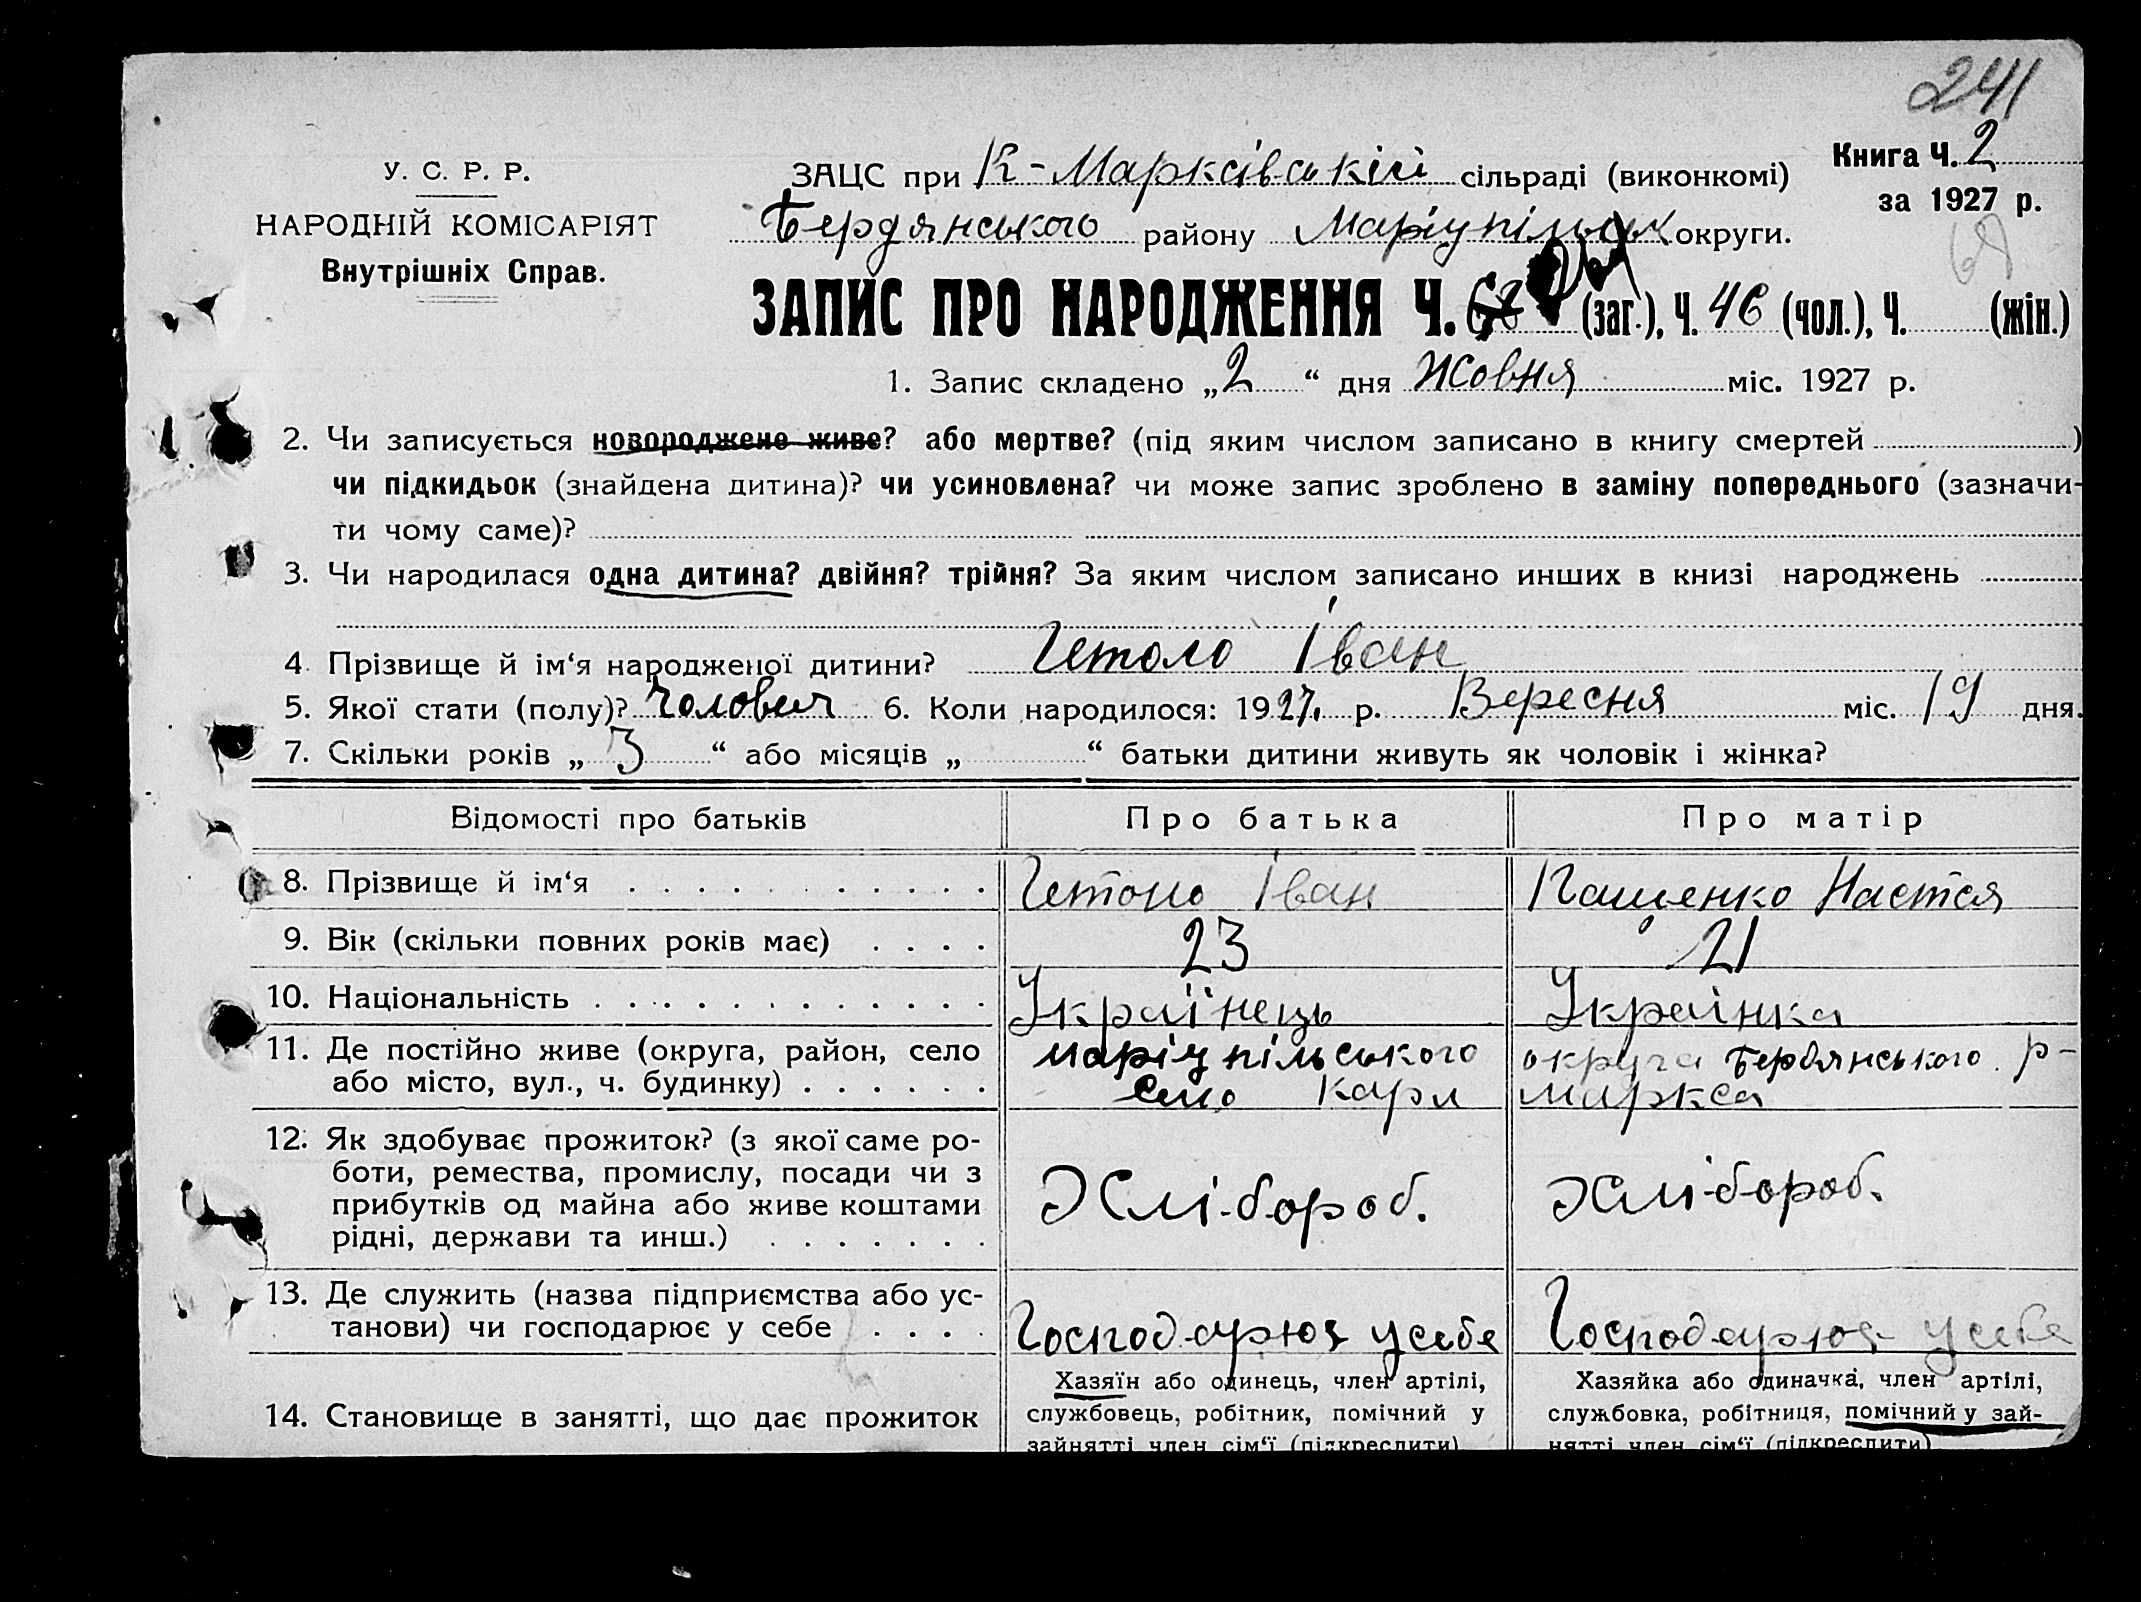 241
У. С. Р. Р.
НАРОДНІЙ КОМІСАРІЯТ
Внутрішніх Справ.
ЗАЦС при К-Марксівській сільраді (виконкомі)
Книга Ч. 2
за 1927 р.
Бердянського району Маріупільськ округи.
ЗАПИС ПРО НАРОДЖЕННЯ Ч. (заг.), Ч. 46 (чол.), Ч. (жін.)
1. Запис складено „2“ дня Жовня міс. 1927 р.
2. Чи записується новороджене живе? або мертве? (під яким числом записано в книгу смертей )
чи підкидьок (знайдена дитина)? чи усиновлена? чи може запис зроблено в заміну попереднього (зазначи-
ти чому саме)?
3. Чи народилася одна дитина? двійня? трійня? За яким числом записано инших в книзі народжень
4. Прізвище й ім‘я народженої дитини? Гетоло Іван
5. Якої стати (полу)? Чолович 6. Коли народилося: 1927. р. Вересня міс. 19 дня.
7. Скільки років „3“ або місяців „ “ батьки дитини живуть як чоловік і жінка?
Відомості про батьків Про батька Про матір
8. Прізвище й ім‘я . . . . . . . . . . . Іван Пащенко Настя
9. Вік (скільки повних років має) . . . . 23 21
10. Національність . . . . . . . . . . . . Українець Українка
11. Де постійно живе (округа, район, село Маріупільського округа Бердянського р-
або місто, вул., ч. будинку) . . . . . . Село Карл Маркса
12. Як здобуває прожиток? (з якої саме ро-
боти, ремества, промислу, посади чи з
прибутків од майна або живе коштами
рідні, держави та инш.) . . . . . . .
Хлі-бороб. Хлі-бороб.
13. Де служить (назва підприємства або ус-
танови) чи господарює у себе . . . .
Господарює у себе Господарює у себе
14. Становище в занятті, що дає прожиток
Хазяїн або одинець, член артілі,
службовець, робітник, помічний у
зайнятті член сім‘ї (підкреслити)
Хазяйка або одиначка, член артілі,
службовка, робітниця, помічний у зай-
нятті член сім‘ї (підкреслити)